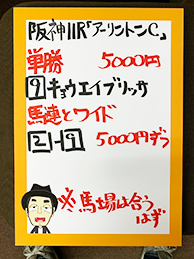 阪神11R「アーリントンC」
単勝 5000円
9キョウエイブリッサ
馬連とワイド
2-9 5000円ずつ
※馬場は合うはず